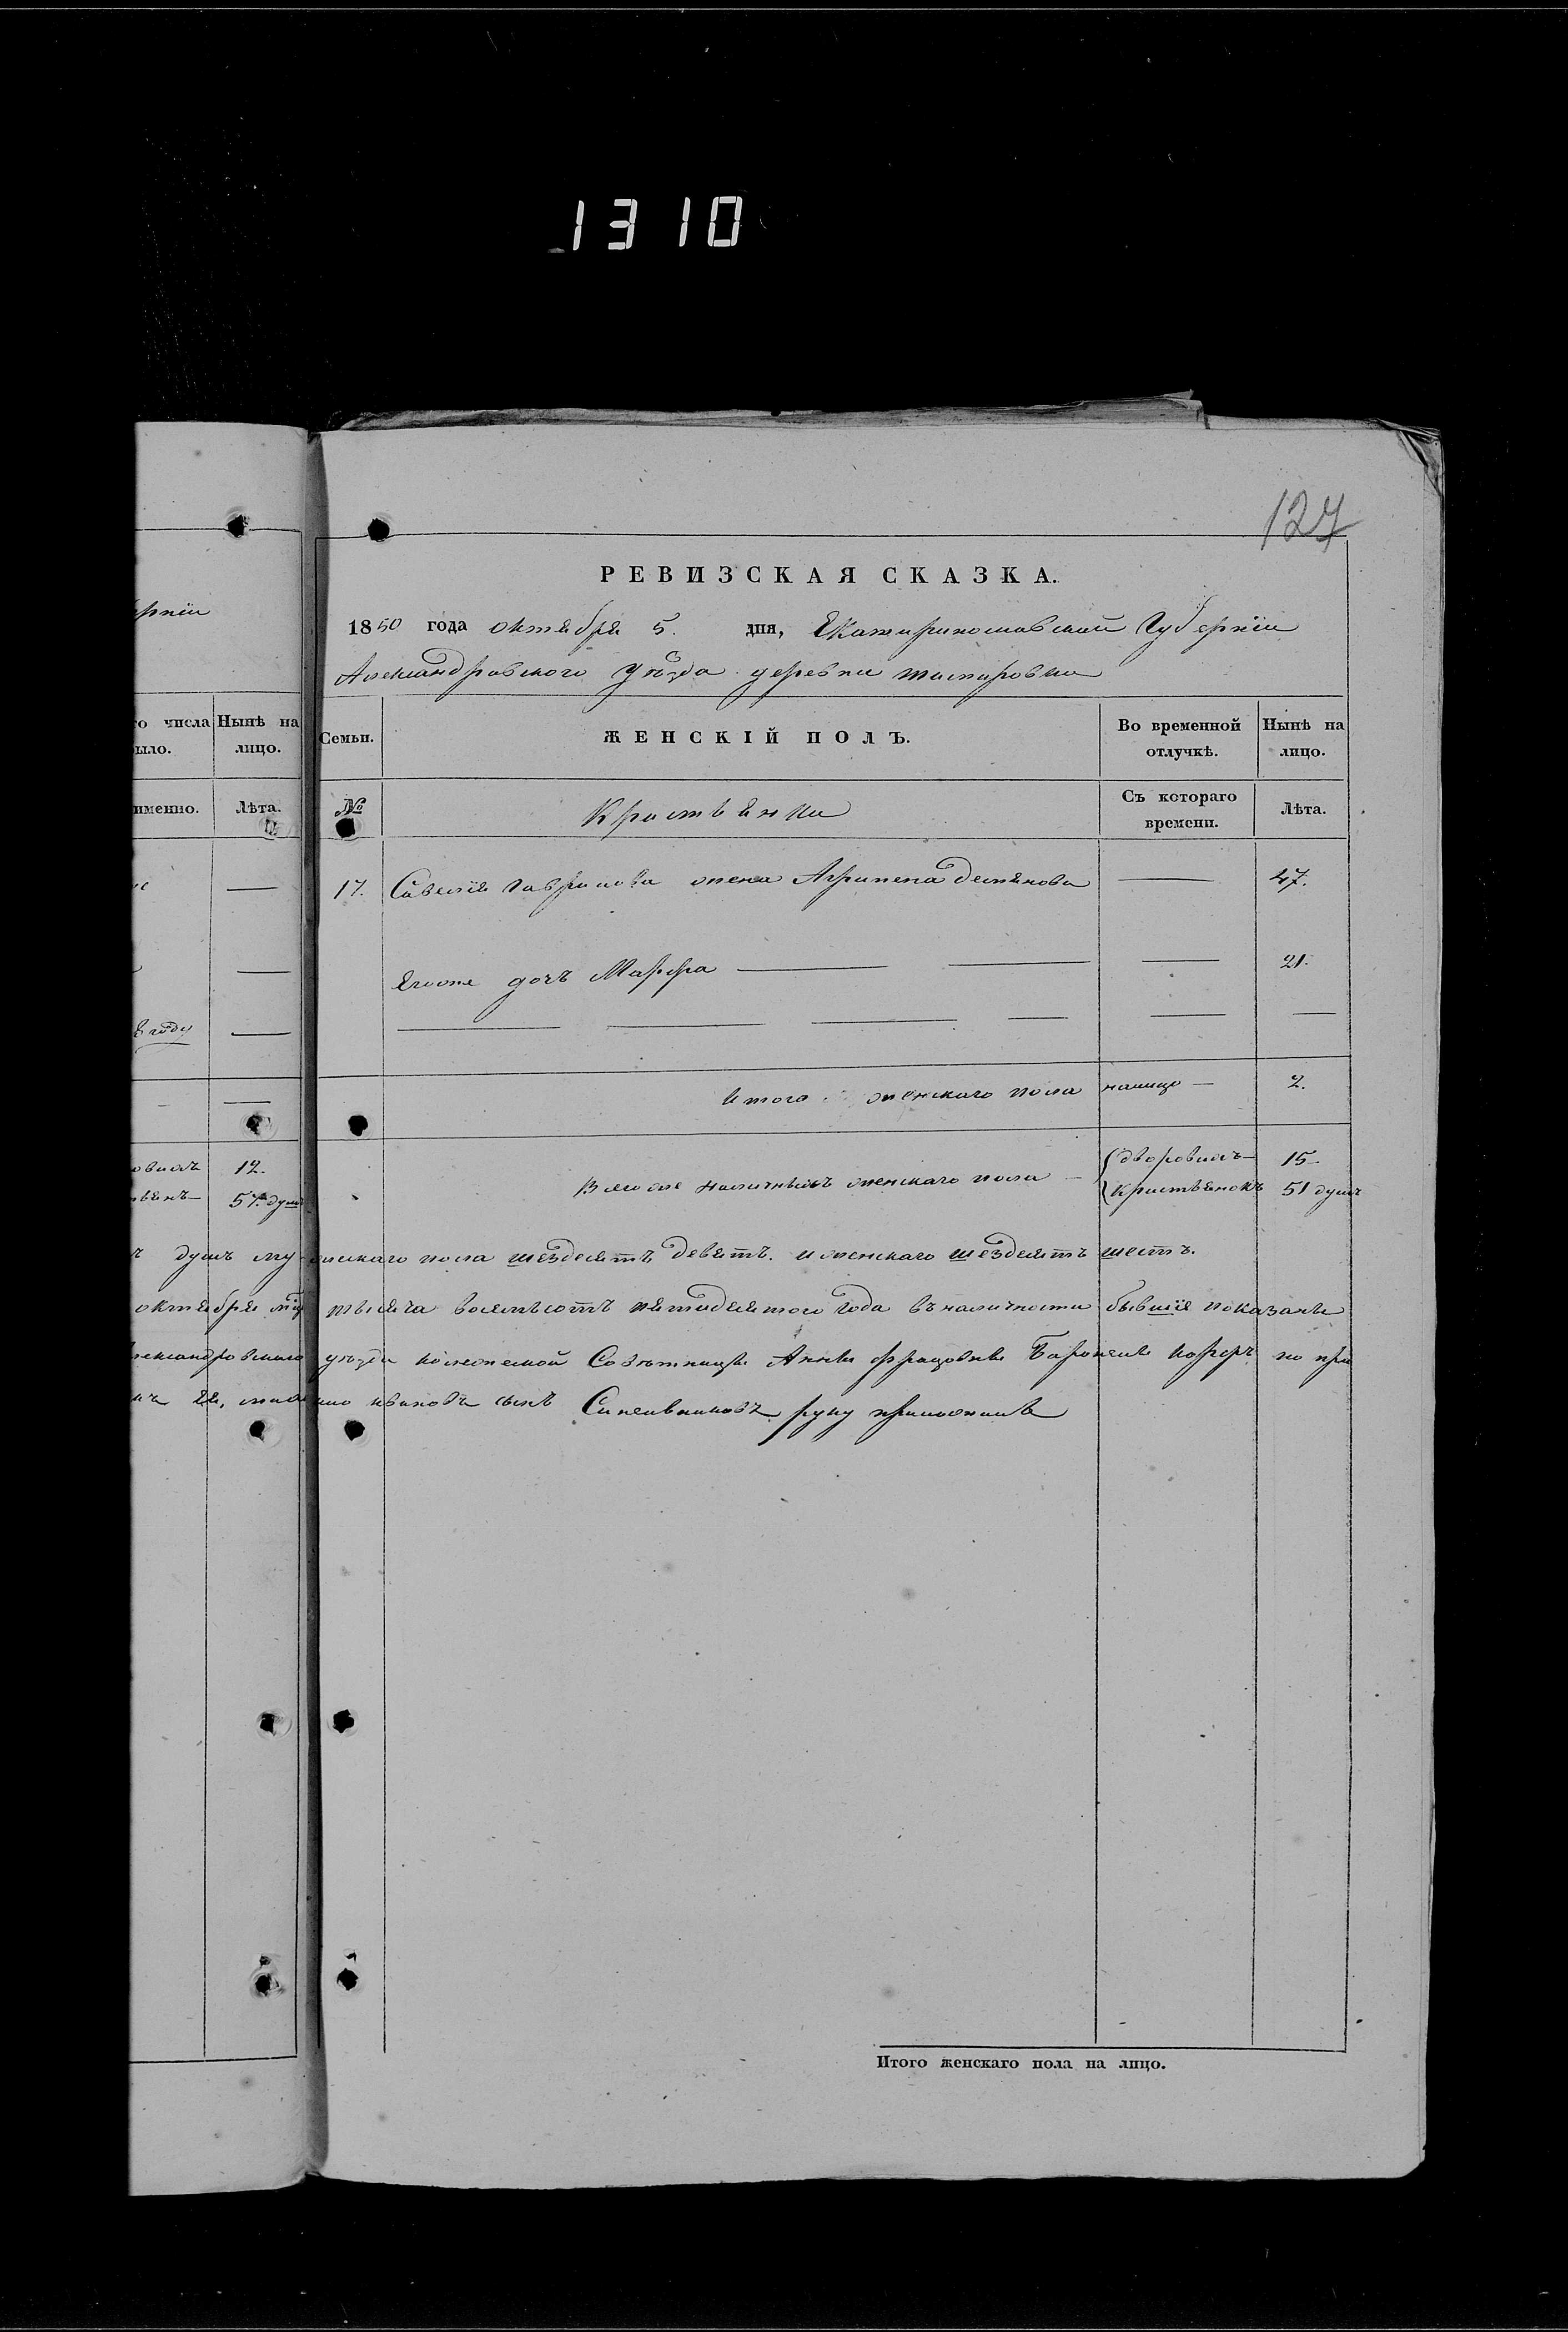 1310
127
РЕВИЗСКАЯ СКАЗКА.
1850 года октября 5. дня, Екатеринославской Губернїи
Александровского Уѣзда деревни
рніи
го числа
ыло.
Нынѣ на
лицо.
Семьи.
ЖЕНСКІЙ ПОЛЪ.
Во временной
отлучкѣ.
Нынѣ на
лицо.
именно.
Лѣта.
№
Кристьянки
Съ котораго
времени.
Лѣта.
17. Савелїя Гаврилова жена Агрипена Демянова — 47.
Егоже дочъ Марфа — — — 21.
году —
Итого женскаго пола налицо — 2.
12.
57. душ
Всегоже наличныхъ женскаго пола —
дворовыхъ — 15
Кристьянокъ 51 душъ
душъ мужескаго пола шездесятъ девятъ. и женскаго шездесятъ шестъ.
октября мця тысяча восемьсотъ пятидесятого Года въ наличности бывшїе показаны
Александровскаго уѣзда колежской Совѣтницы Анны Баронессы Корфъ по при
ея, ивановъ сынъ руку приложилъ
Итого женскаго пола на лицо.